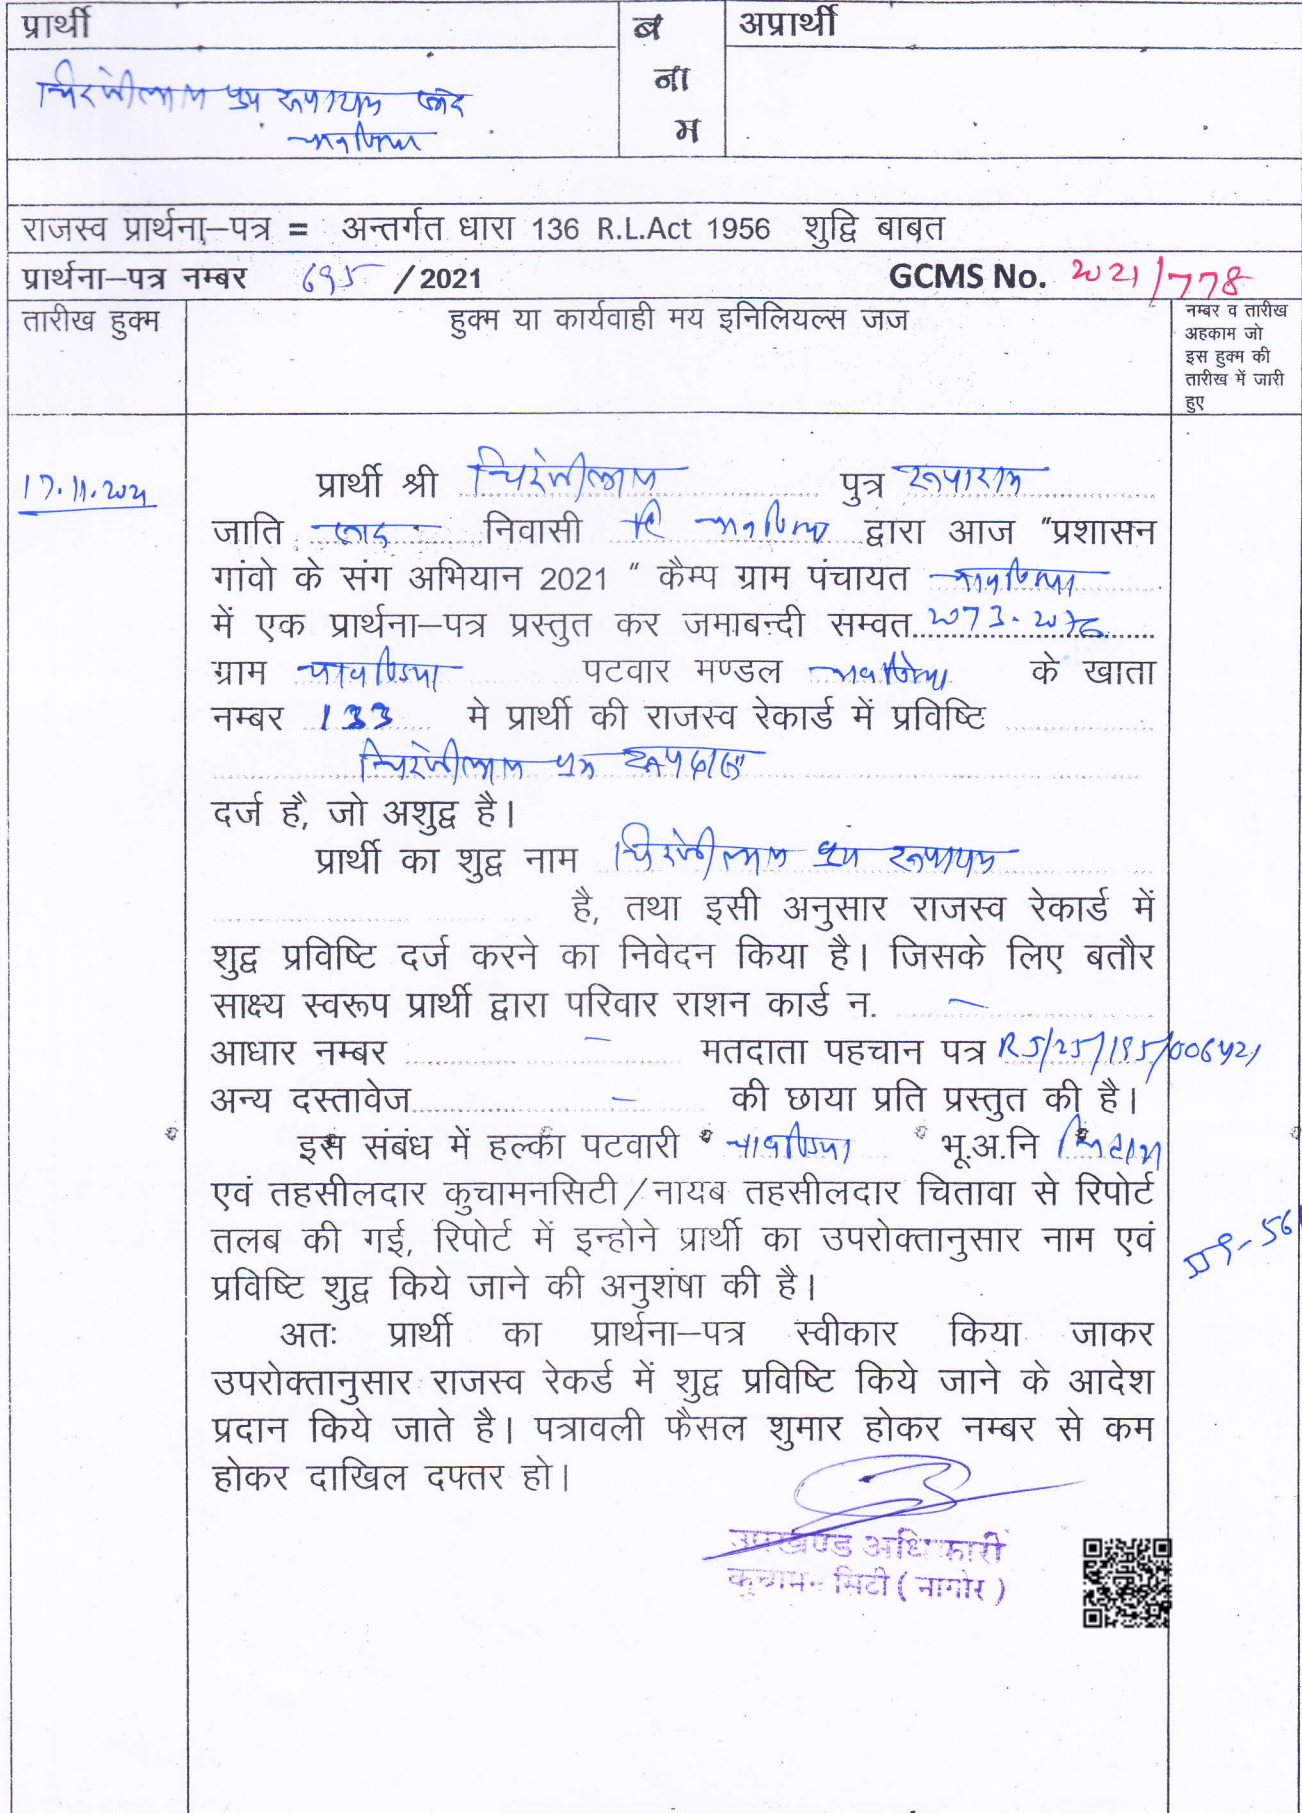 प्रार्थी
ब
ना
म
अप्रार्थी
चिरंजीलाल पुत्र रूपाराम
राजस्व प्रार्थना–पत्र = अन्तर्गत धारा 136 R.L.Act 1956 शुद्वि बाबत
प्रार्थना–पत्र नम्बर 695 / 2021 GCMS No. 2021/778
तारीख हुक्म
हुक्म या कार्यवाही मय इनिलियल्स जज
नम्बर व तारीख
अहकाम जो
इस हुक्म की
तारीख में जारी
हुए
17.11.2021
प्रार्थी श्री चिरंजीलाल पुत्र रूपाराम
जाति निवासी द्वारा आज "प्रशासन
गांवो के संग अभियान 2021 " कैम्प ग्राम पंचायत चावण्डिया
में एक प्रार्थना–पत्र प्रस्तुत कर जमाबन्दी सम्वत 2073-2076
ग्राम चावण्डिया पटवार मण्डल चावण्डिया के खाता
नम्बर 133 मे प्रार्थी की राजस्व रेकार्ड में प्रविष्टि
चिरंजीलाल पुत्र रूपदास
दर्ज है, जो अशुद्व है।
प्रार्थी का शुद्व नाम चिरंजीलाल पुत्र रूपाराम
है, तथा इसी अनुसार राजस्व रेकार्ड में
शुद्व प्रविष्टि दर्ज करने का निवेदन किया है। जिसके लिए बतौर
साक्ष्य स्वरूप प्रार्थी द्वारा परिवार राशन कार्ड न. –
आधार नम्बर – मतदाता पहचान पत्र RJ/25/195/006421
अन्य दस्तावेज – की छाया प्रति प्रस्तुत की है।
इस संबंध में हल्का पटवारी चावण्डिया भू.अ.नि
एवं तहसीलदार कुचामनसिटी/नायब तहसीलदार चितावा से रिपोर्ट
तलब की गई, रिपोर्ट में इन्होने प्रार्थी का उपरोक्तानुसार नाम एवं
प्रविष्टि शुद्व किये जाने की अनुशंषा की है।
अतः प्रार्थी का प्रार्थना–पत्र स्वीकार किया जाकर
उपरोक्तानुसार राजस्व रेकर्ड में शुद्व प्रविष्टि किये जाने के आदेश
प्रदान किये जाते है। पत्रावली फैसल शुमार होकर नम्बर से कम
होकर दाखिल दफ्तर हो।
उपखण्ड अधिकारी
कुचामन सिटी ( नागोर )